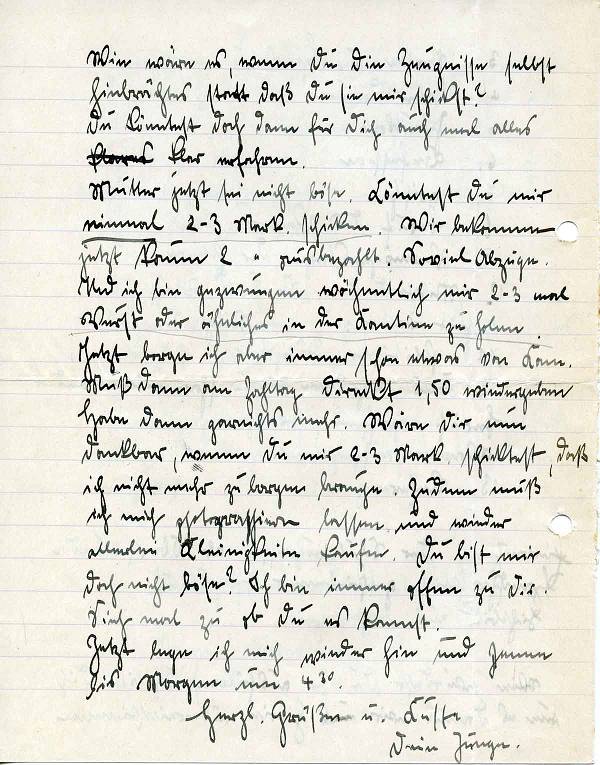 Wie wäre es, wenn Du die Zeugnisse selbst
hinbrächtest statt daß Du sie mir schickst?
Du könntest doch dann für Dich auch mal alles
klar erfahren.
Mutter jetzt sei nicht böse. Könntest Du mir
einmal 2-3 Mark schicken. Wir bekommen
jetzt kaum 2 " ausbezahlt. Soviel Abzüge.
Und ich bin gezwungen wöchentlich mir 2-3 mal
Wurst oder ähnliches in der Kantine zu holen.
Jetzt borge ich aber immer schon etwas von Kam.
Muß dann am Zahltag direckt 1,50 wiedergeben
Habe dann garnichts mehr. Wäre Dir nun
dankbar, wenn Du mir 2-3 Mark schicktest, daß
ich nicht mehr zu borgen brauche. Zudem muß
ich mich photographieren lassen und wieder
allerlei Kleinigkeiten kaufen. Du bist mir
doch nicht böse? Ich bin immer offen zu Dir.
Sieh mal zu ob Du es kannst.
Jetzt lege ich mich wieder hin und penne
bis Morgen um 4 30.
Herzl. Grüßen u. Küsse
Dein Junge.